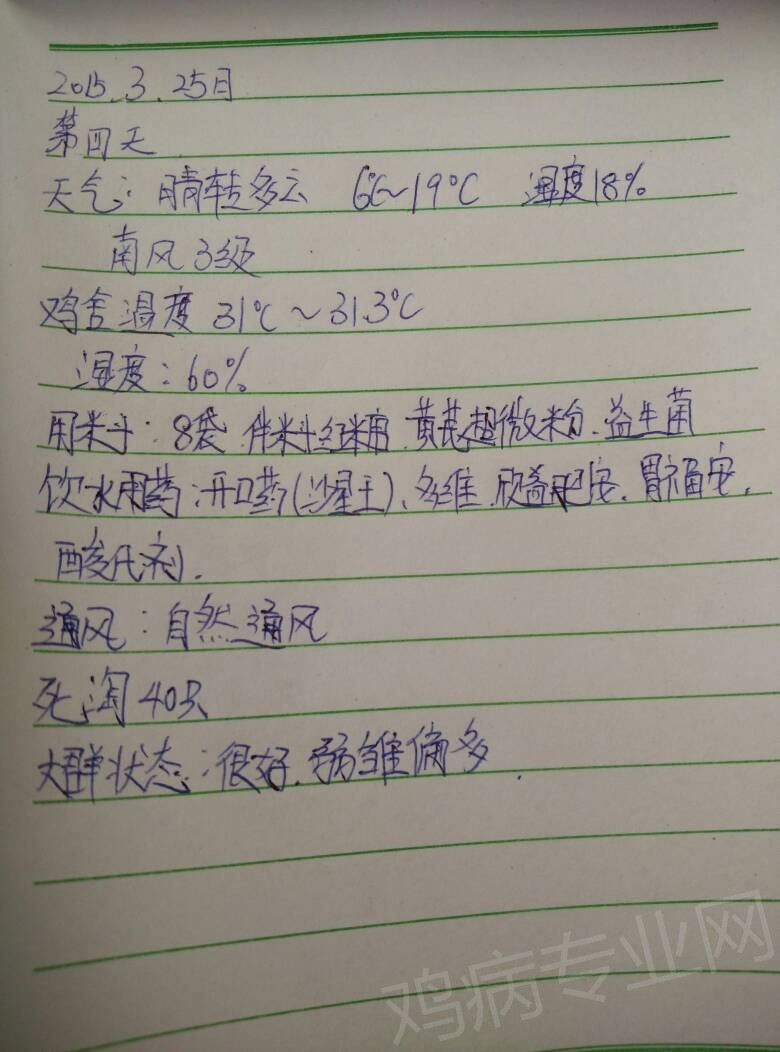 2015.3.25日
第四天
天气：晴转多云 6℃~19℃ 湿度18%
南风3级
鸡舍温度 31℃~31.3℃
湿度：60%
用料：8袋 伴料红糖 黄芪超微粉.益生菌
饮水用药：开口药(沙星王)、多维.欣益肥安.胃福安,
酸化剂.
通风：自然通风
死淘40只
大群状态：很好.弱雏偏多.
鸡病专业网